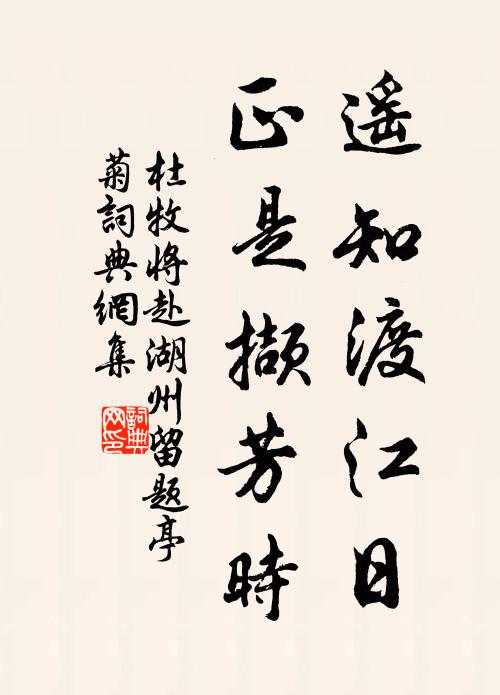 遥知渡江日
正是擷芳時
杜牧將赴湖州留题亭
菊詞典網集
詞典
网印